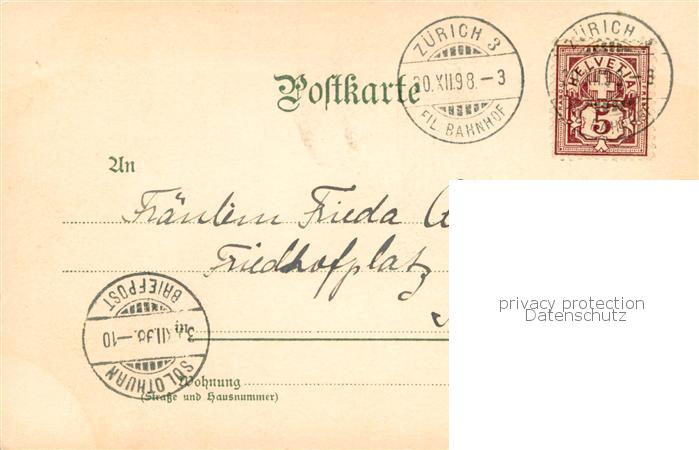 ZÜRICH 3
20.XII.98.–3
FIL. BAHNHOF
ZÜRICH 3
HELVETIA
5
Postkarte
An
Fräulein Frieda
Friedhofplatz
privacy protection
Datenschutz
BRIEFPOST
XII.98.–10
SOLOTHURN
in
Wohnung
(Straße und Hausnummer)